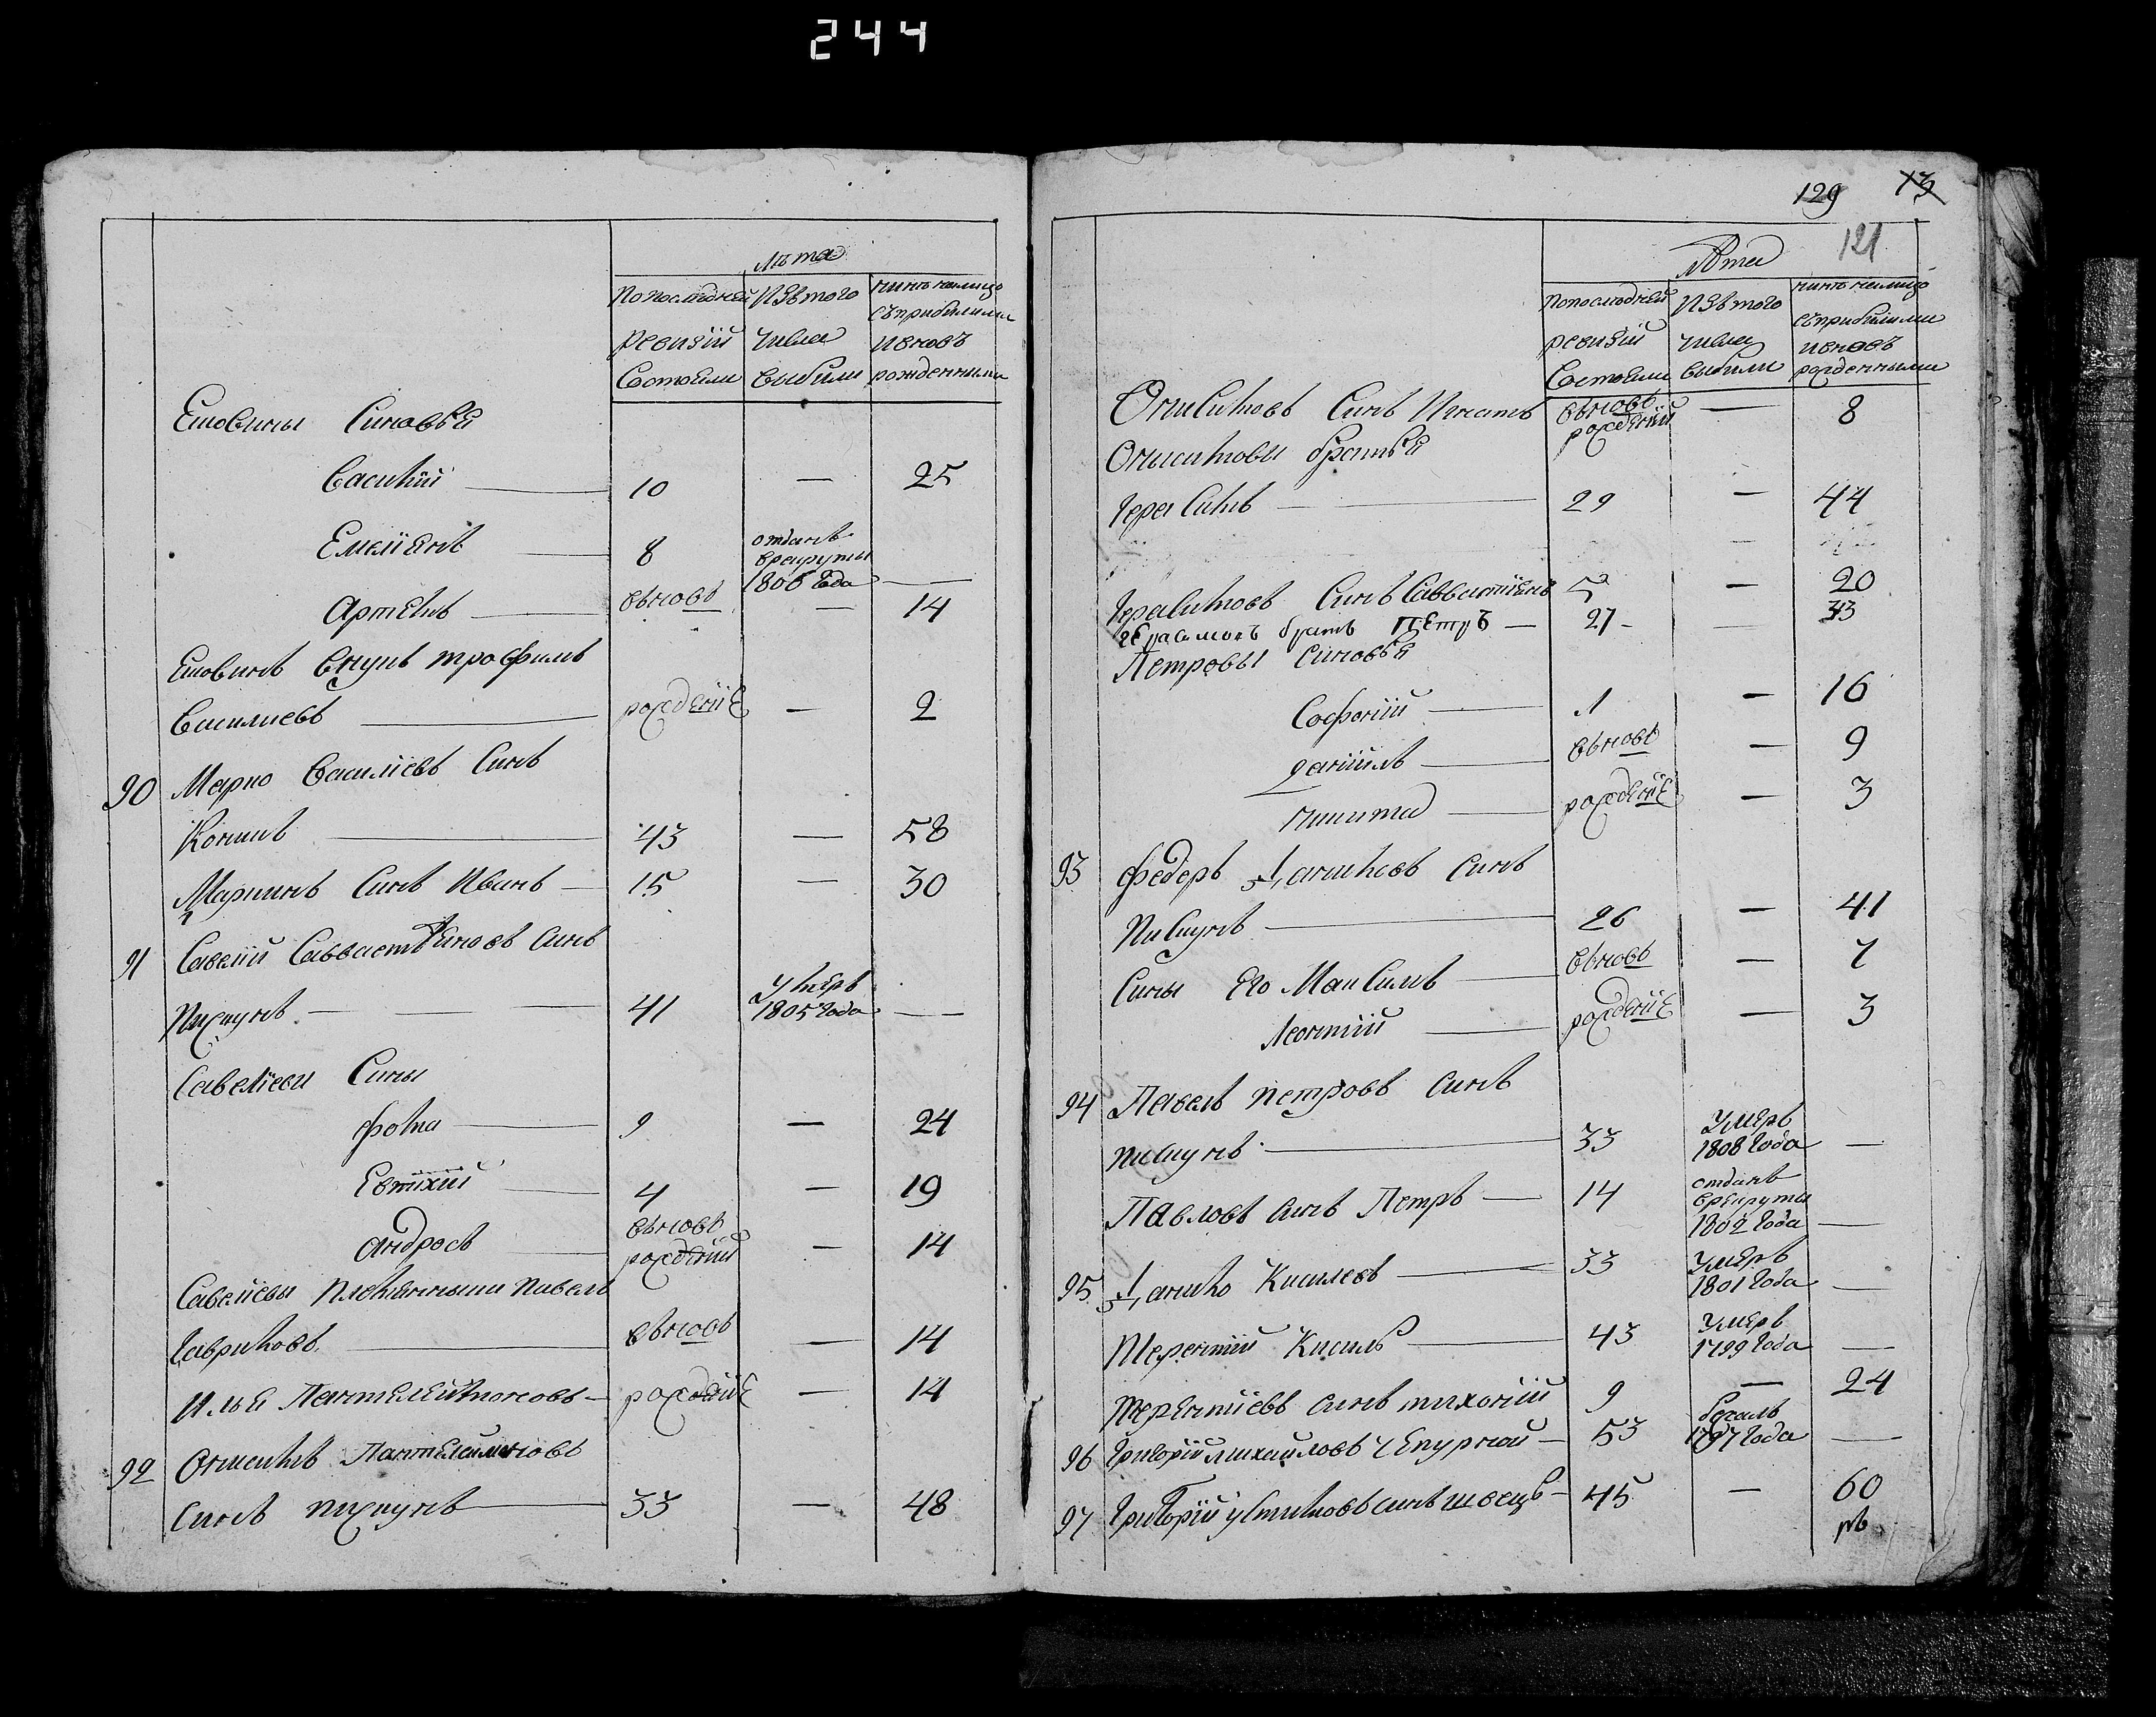 244
лѣта
по последней
ревизіи
Состояли
Изъ того
числа
выбыли
ныне налицо
съ прибылыми
и вновь
рожденными
Сыновья
Василий 10 — 25
Емелиянъ 8 отданъ в рекруты 1806 года —
Артемъ вновь — 14
внукъ трофимъ
Василиевъ рожденiе — 2
90 Марко Василiевъ Синъ
43 — 58
Маркинъ Синъ Иванъ 15 — 30
91 Савелiй Савваст Синъ
Пискунъ 41 Умеръ 1805 года —
Савелiеви Сины
фома 9 — 24
Евтихий 4 — 19
андрей вновь рожденiй — 14
Савелiевы племянники Павелъ
Гавриловъ вновь — 14
Илья Пантелеймоновъ рожденiе — 14
92 Онисимъ Пантелеймоновъ
Синъ пискунъ 33 — 48
129 13
121
лѣта
по последней
ревизiй
Состояли
Изъ того
числа
выбыли
ныне налицо
съ прибылыми
и вновь
рожденными
Онисимовъ Синъ Игнатъ вновь рожденiй — 8
Онисимови братья
Герасимъ — 29 — 44
Герасимовъ Синъ Савастiянъ 5 — 20
Герасимовъ братъ Петръ — 27 — 33
Петровы Синовья
Софонiй 1 — 16
данiилъ вновь — 9
никита рожденiе — 3
93 федоръ Даниловъ Синъ
Пискунъ 26 — 41
Сины Его Максимъ вновь — 7
Леонтий рожденiе — 3
94 Павелъ Петровъ Синъ
пискунъ 33 Умеръ 1808 года —
Павловъ Синъ Петръ — 14 отданъ в рекруты 1802 года —
95 Данило Киселевъ 33 Умеръ 1801 года —
Терентий Кисиль 43 Умеръ 1799 года —
Терентiевъ синъ тихонiй 9 — 24
96 Григорiй михайловъ чепурной — 53 бежалъ 1797 года —
97 Григорiй устимовъ синъ швецъ — 45 — 60